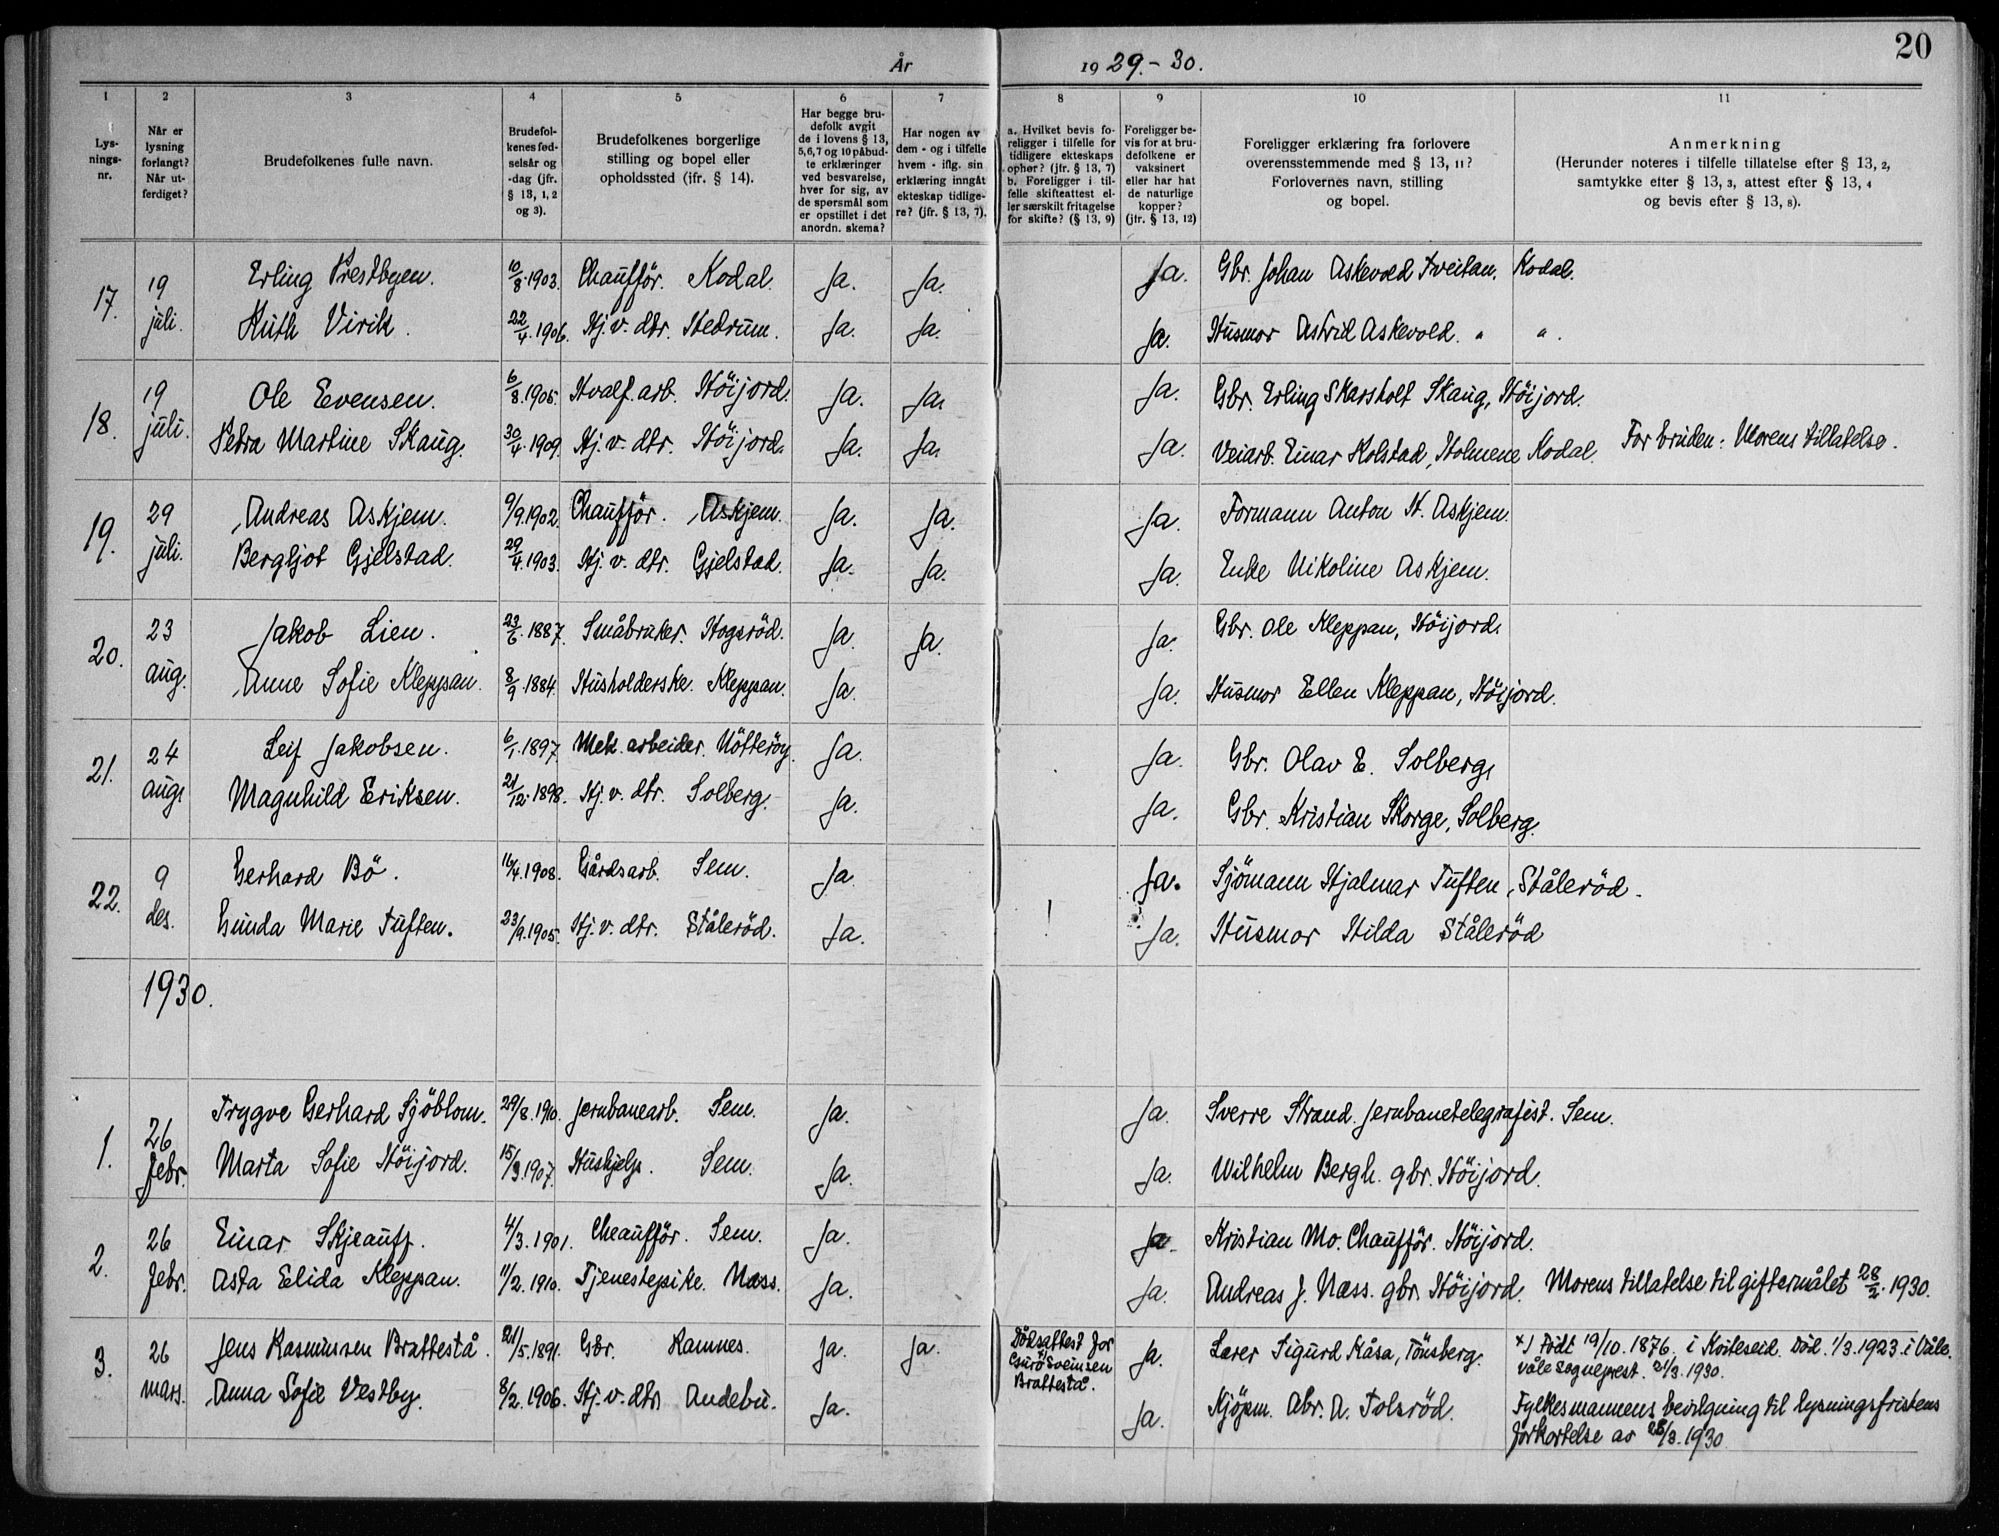 20
År 1929.-30.
1 2 3 4 5 6 7 8 9 10 11
Lysnings-nr.
Når er lysning forlangt? Når utferdiget?
Brudefolkenes fulle navn.
Brudefolkenes fødselsår og -dag (jfr. § 13, 1, 2 og 3).
Brudefolkenes borgerlige stilling og bopel eller opholdssted (ifr. § 14).
Har begge brudefolk avgit de i lovens § 13, 5,6,7 og 10 påbudte erklæringer ved besvarelse, hver for sig, av de spørsmål som er opstillet i det anordn. skema?
Har nogen av dem - og i tilfelle hvem - iflg. sin erklæring inngåt ekteskap tidligere? (jfr. § 13, 7).
a. Hvilket bevis foreligger i tilfelle for tidligere ekteskaps ophør? (jfr. § 13, 7) b. Foreligger i tilfelle skifteattest eller særskilt fritagelse for skifte? (§ 13, 9)
Foreligger bevis for at brudefolkene er vaksinert eller har hat de naturlige kopper? (jfr. § 13, 12)
Foreligger erklæring fra forlovere overensstemmende med § 13, 11? Forlovernes navn, stilling og bopel.
Anmerkning (Herunder noteres i tilfelle tillatelse efter § 13, 2, samtykke efter § 13, 3, attest efter § 13, 4 og bevis efter § 13, 8).
17. 19 juli. Erling Prestbyen. 10/8.1903. Chaufför. Kodal. Ja. Ja. Ja. Gbr. Johan Askevold Tveitan. Kodal.
Ruth Virik. 22/4.1906. Hj.v. dtr. Hedrum. Ja. Ja. Ja. Husmor Astrid Askevold. " ".
18. 19 juli. Ole Evensen. 6/8.1905. Hvalf.arb. Höijord. Ja. Ja. Ja. Gbr. Erling Skarsholt Skaug, Höijord.
Petra Martine Skaug. 30/4.1909. Hj.v. dtr. Höijord. Ja. Ja. Ja. Veiarb. Einar Kolstad, Holmene Kodal. For bruden: Morens tillatelse.
19. 29 juli. Andreas Askjem. 9/9.1902. Chaufför. Askjem. Ja. Ja. Ja. Formann Anton H. Askjem.
Bergljot Gjelstad. 29/4.1903. Hj.v. dtr. Gjelstad. Ja. Ja. Ja. Enke Nikoline Askjem.
20. 23 aug. Jakob Lien. 23/6.1887. Småbruker. Hogsröd. Ja. Ja. Ja. Gbr. Ole Kleppan, Höijord.
Anne Sofie Kleppan. 8/9.1884. Husholderske. Kleppan. Ja. Ja. Husmor Ellen Kleppan, Höijord.
21. 24 aug. Leif Jakobsen. 6/1.1897. Mek. arbeider. Nötteröy. Ja. Ja. Gbr. Olav E. Solberg
Magnhild Eriksen. 21/12.1898. Hj.v. dtr. Solberg. Ja. Ja. Gbr. Kristian Skorge, Solberg.
22. 9 des. Gerhard Bö. 16/4.1908. Gårdsarb. Sem. Ja. Ja. Sjömann Hjalmar Tuften, Ståleröd.
Gunda Marie Tuften. 23/9.1905. Hj.v. dtr. Ståleröd. Ja. Ja. Husmor Hilda Ståleröd
1930.
1. 26 febr. Trygve Gerhard Sjöblom. 29/8.1910. Jernbanearb. Sem. Ja. Ja. Sverre Strand. Jernbanetelegrafist. Sem.
Marta Sofie Höijord. 15/9.1907. Hushjelp. Sem. Ja. Ja. Wilhelm Bergh. gbr. Höijord.
2. 26 febr. Einar Skjeautz. 4/3.1901. Cheaufför. Sem. Ja. Ja. Kristian Mo. Chaufför. Höijord.
Asta Elida Kleppan. 11/2.1910. Tjenestepike. Næss. Ja. Ja. Andreas J. Næss. gbr. Höijord. Morens tillatelse til giftermålet 28/2.1930.
3. 26 mars. Jens Rasmussen Brattestå. 21/5.1891. Gbr. Ramnes. Ja. Ja. Dödsattest for Guro Sveinsen Brattestå. Ja. Lærer Sigurd Kåsa, Tönsberg. x) Født 19/10.1876. i Kviteseid. Död. 1/3.1923. i Våle. Våle sogneprest. 21/3.1930.
Anna Sofie Vestby. 8/2.1906. Hj.v. dtr Andebu. Ja. Ja. Kjöpm. Abr. A. Tolsröd. Fylkesmannens bevilgning til lysningsfristens forkortelse av 28/3.1930